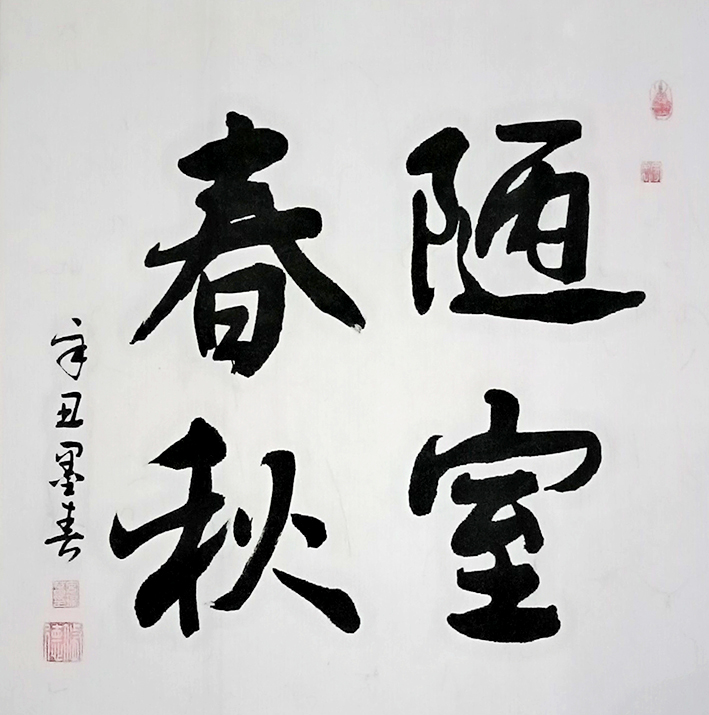 陋室
春秋
辛丑墨春